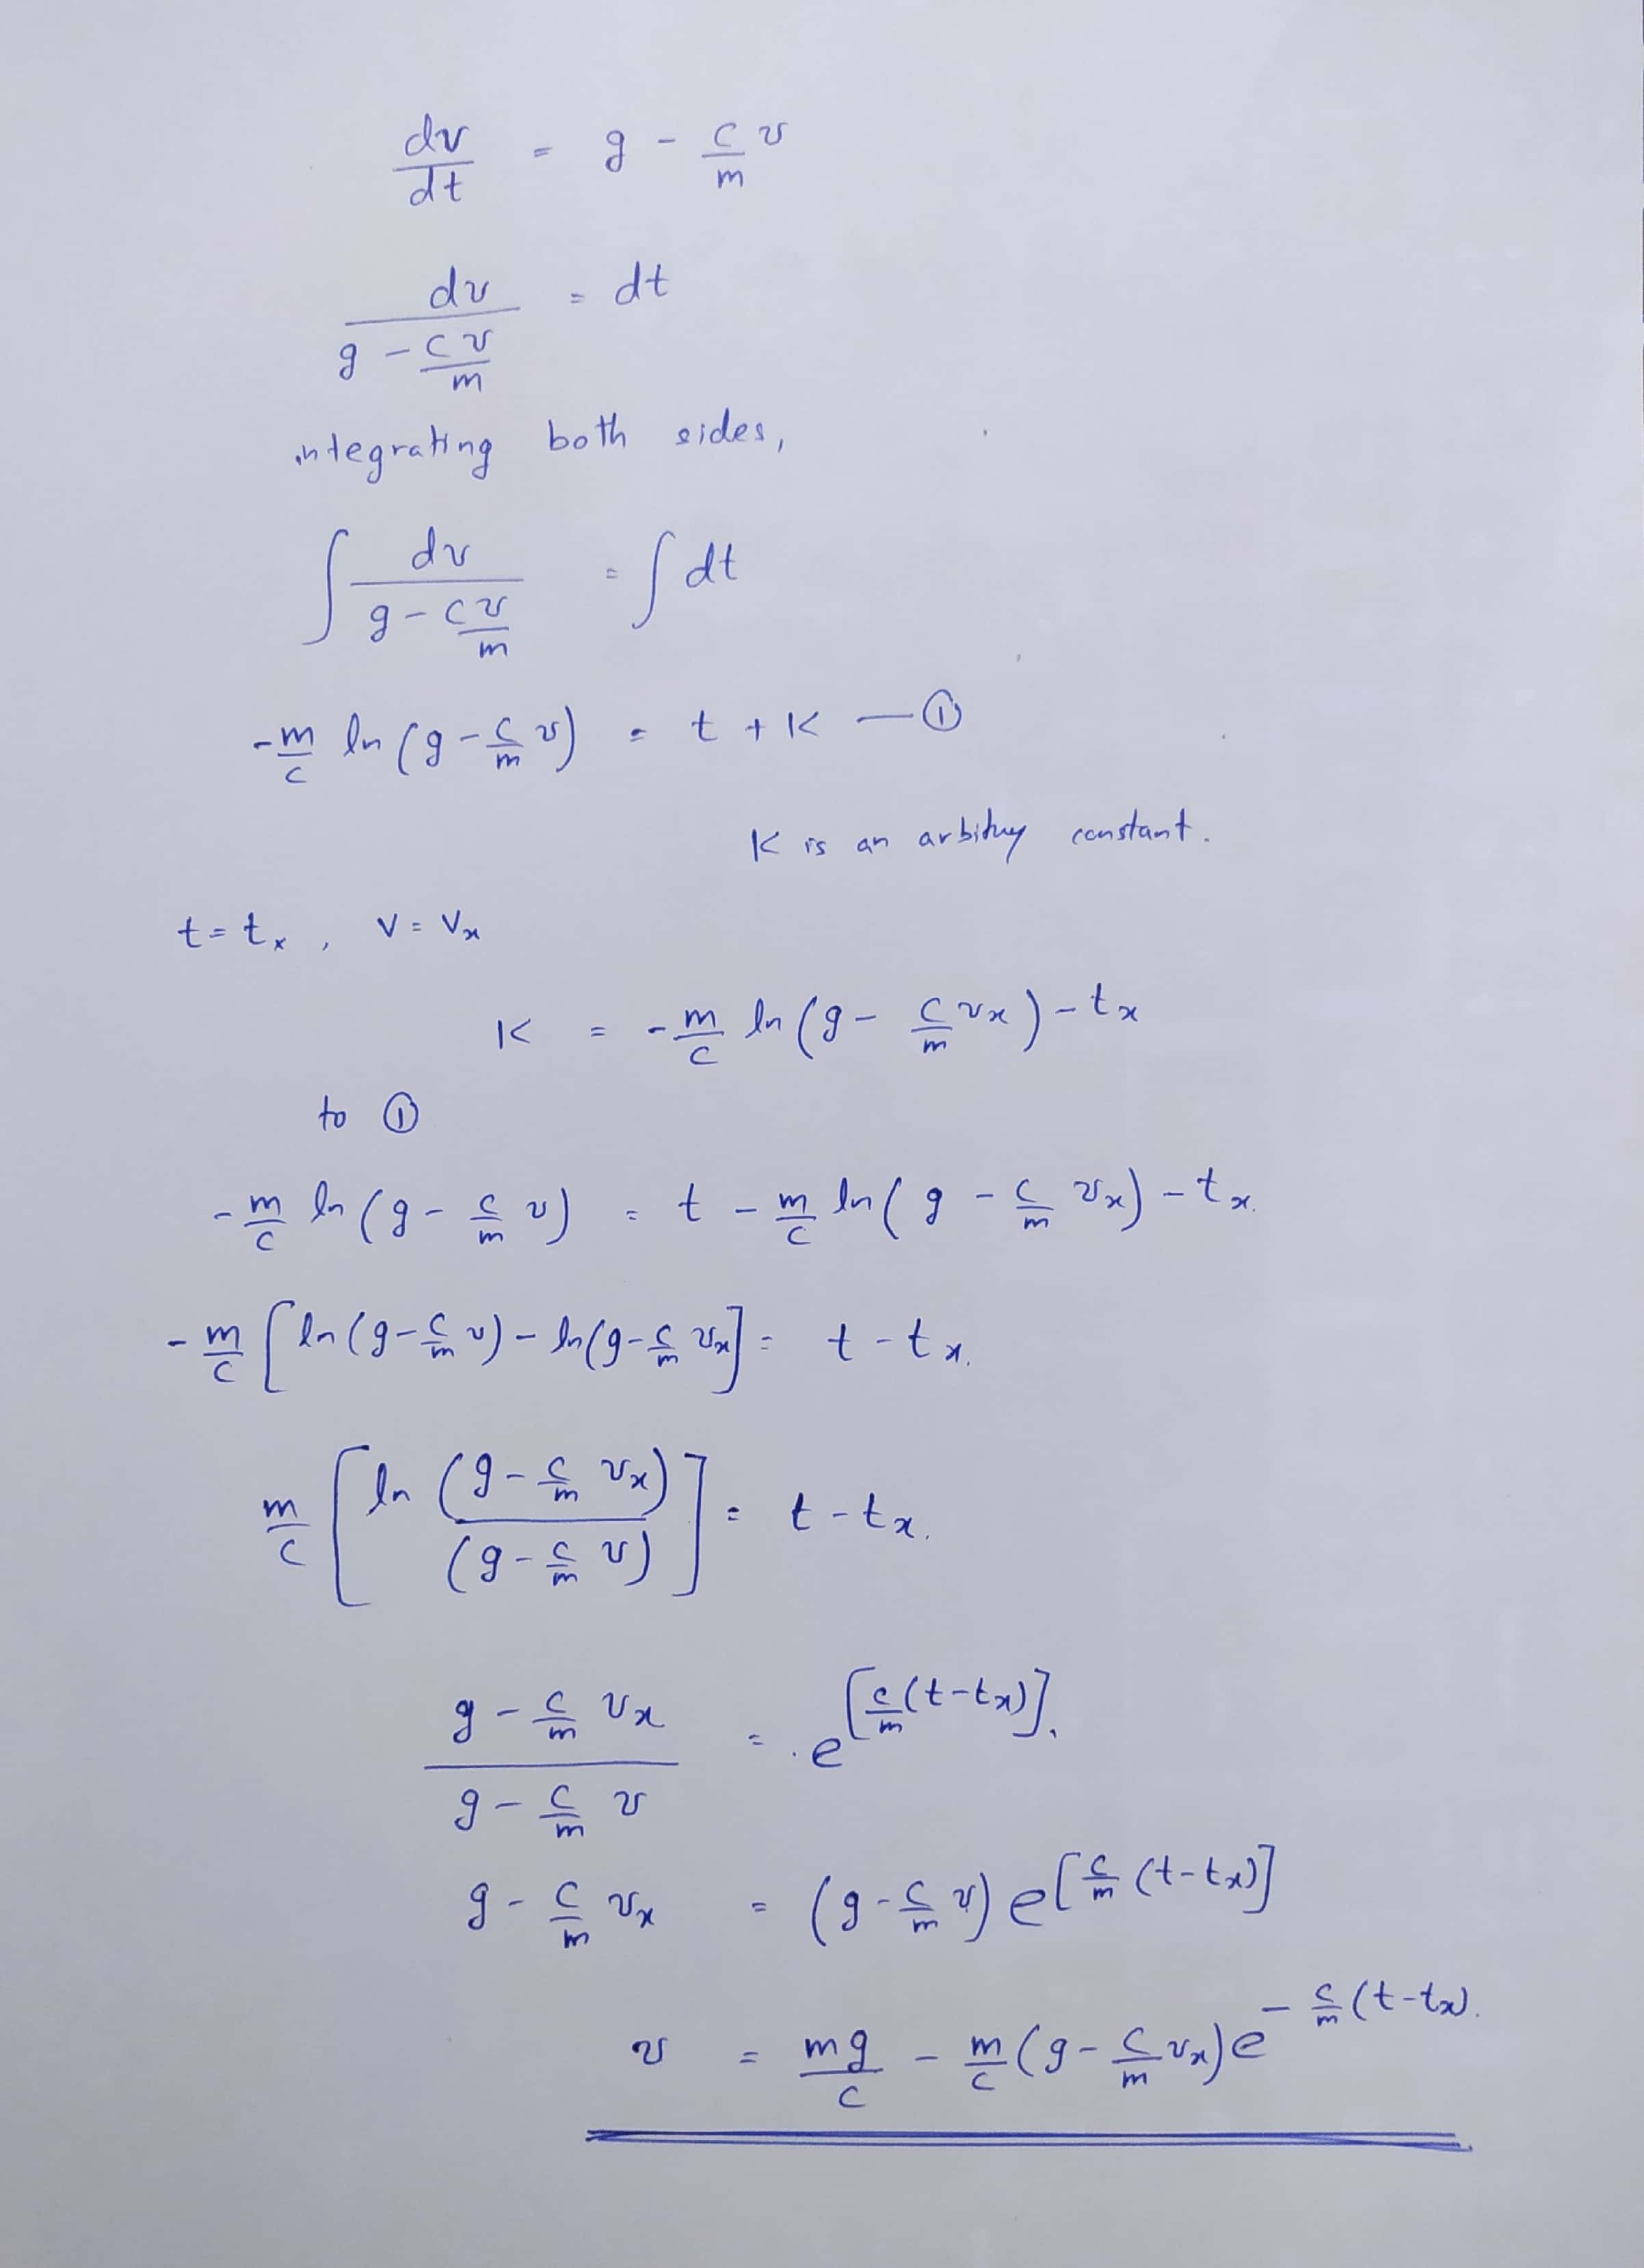 dv/dt = g - c/m v
dv/(g - cv/m) = dt
integrating both sides,
∫ dv/(g - cv/m) = ∫ dt
-m/c ln(g - c/m v) = t + K — ①
K is an arbitury constant.
t = tₓ , V = Vₓ
K = -m/c ln(g - c/m vₓ) - tₓ
to ①
-m/c ln(g - c/m v) = t - m/c ln(g - c/m vₓ) - tₓ.
-m/c [ln(g - c/m v) - ln(g - c/m vₓ] = t - tₓ.
m/c [ln (g - c/m vₓ)/(g - c/m v)] = t - tₓ.
(g - c/m vₓ)/(g - c/m v) = e^[c/m (t - tₓ)].
g - c/m vₓ = (g - c/m v) e^[c/m (t - tₓ)]
v = mg/c - m/c (g - c/m vₓ) e^(- c/m (t - tₓ).